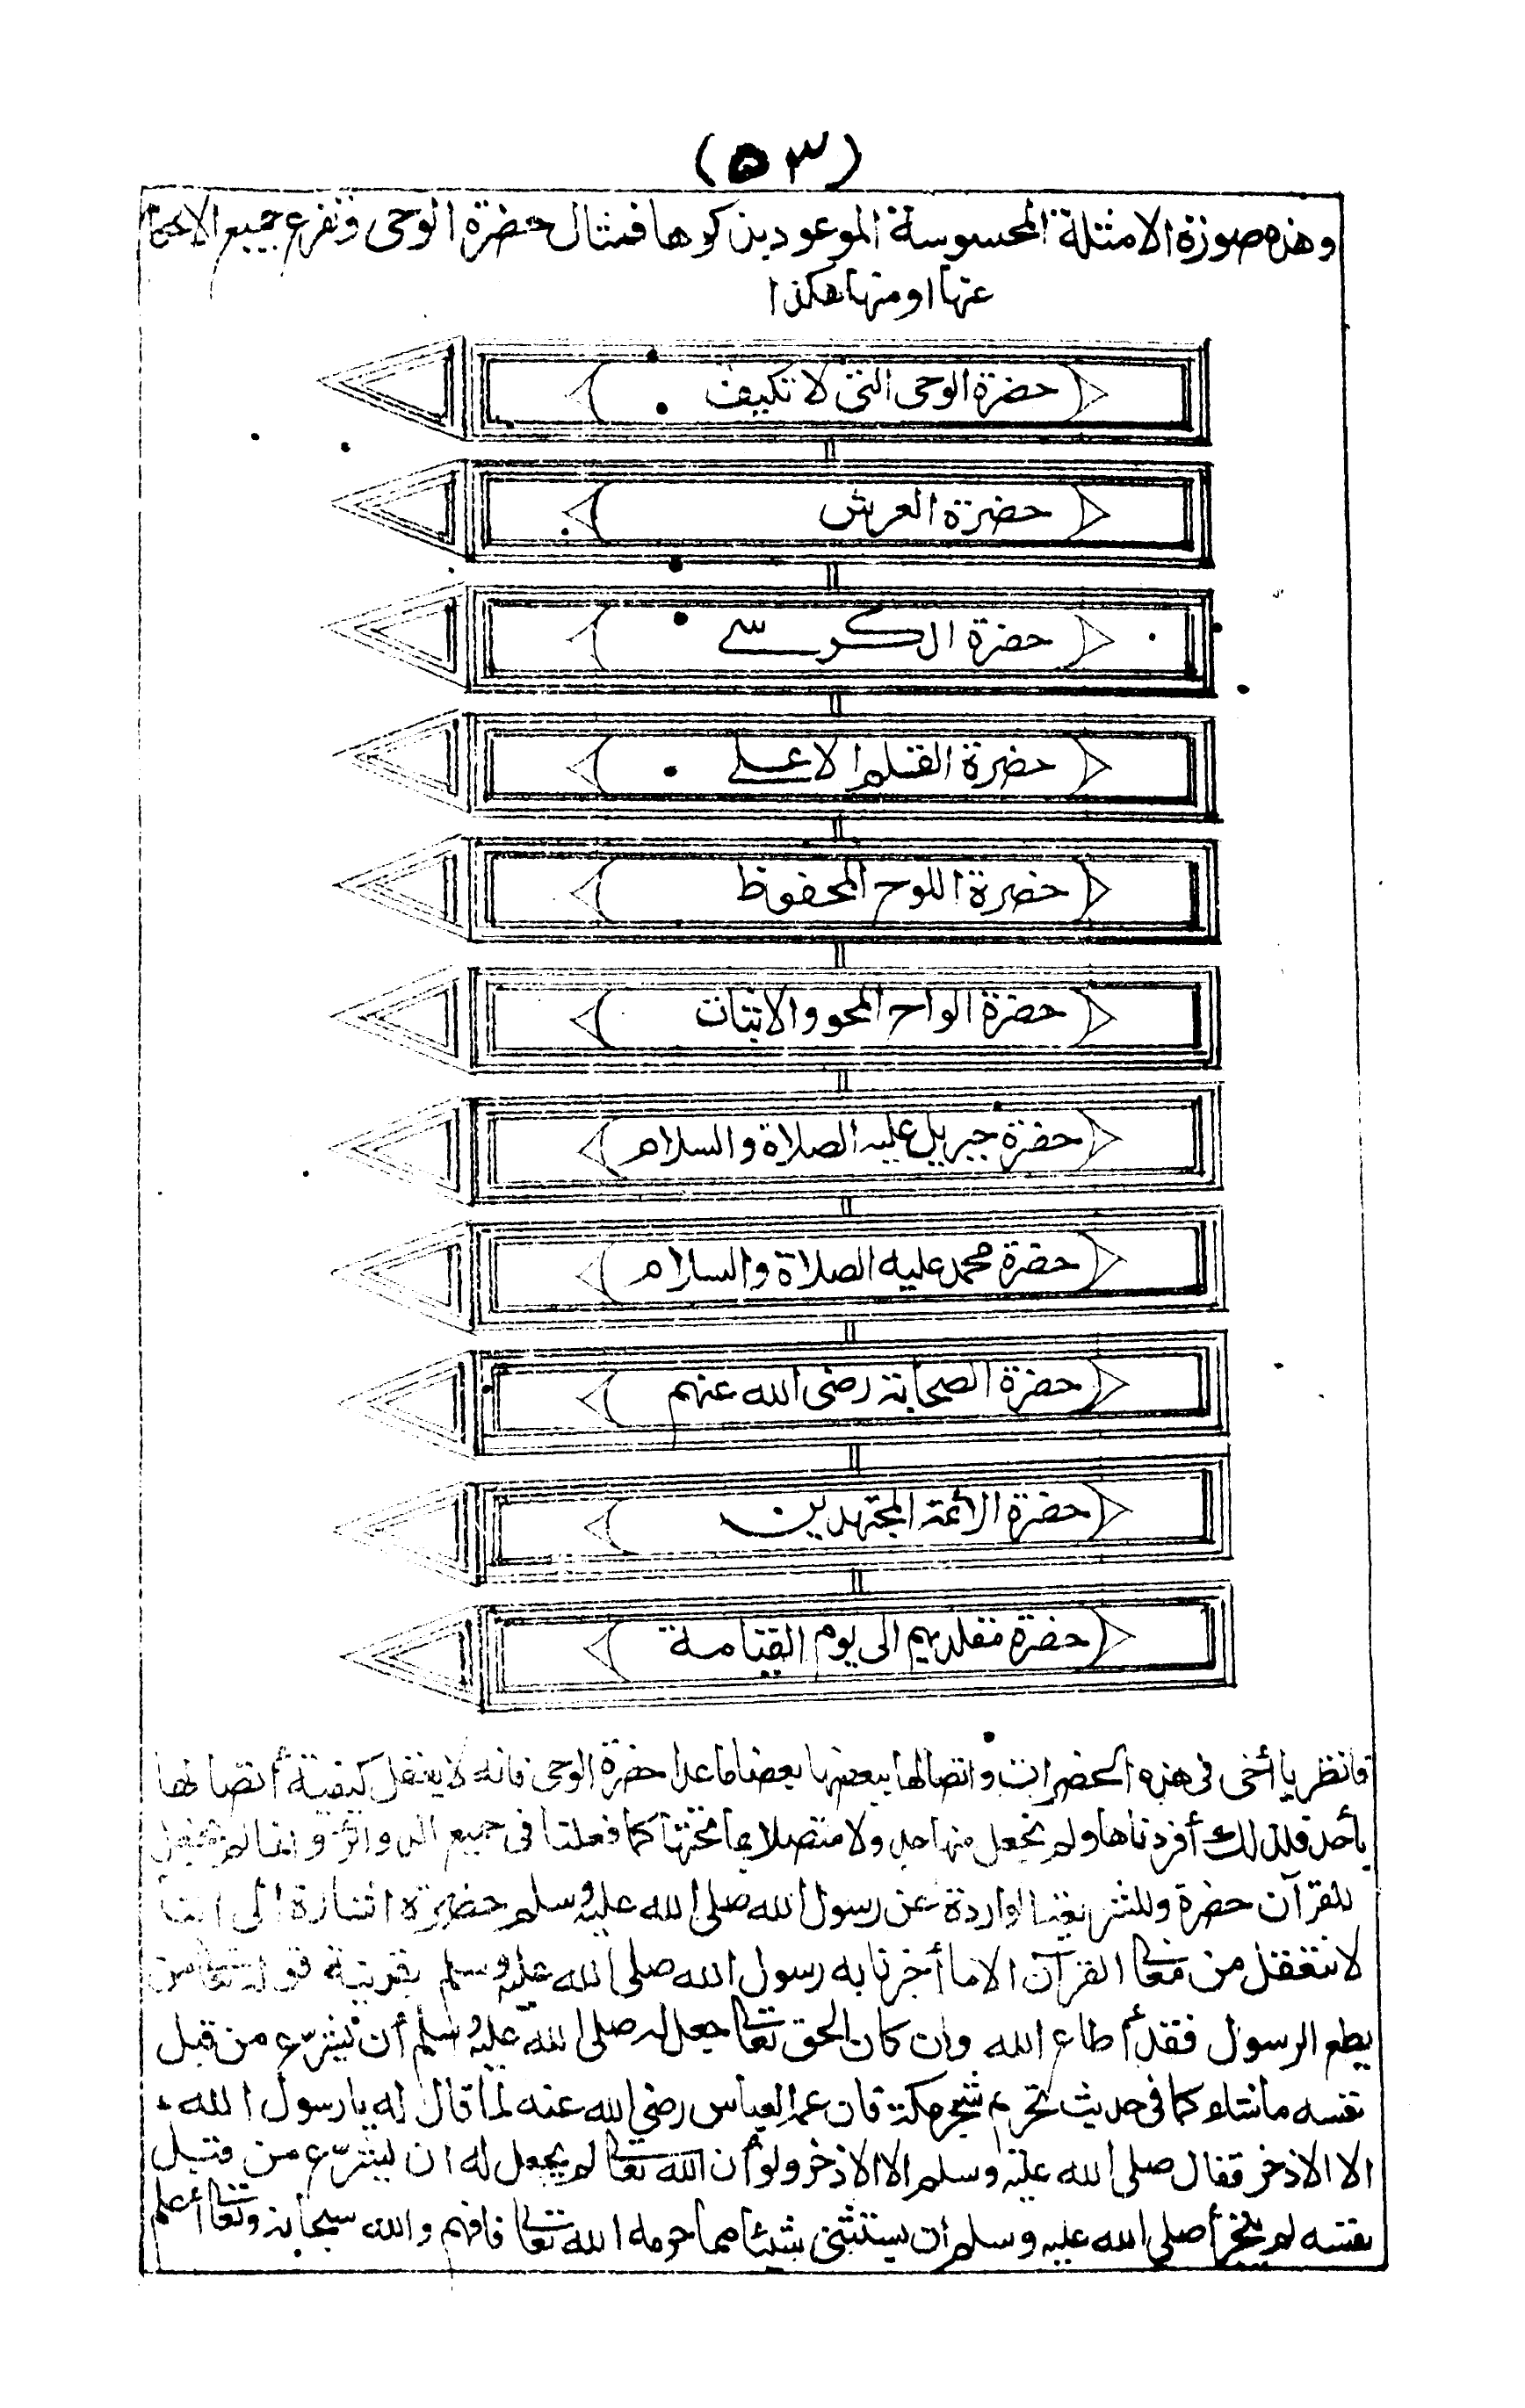 (٥٣)
وهذه صورة الامثلة المحسوسة الموعود بذكرها فمثال حضرة الوحى وتفرع جميع الاحكام
عنها او منها هكذا
حضرة الوحى التى لا تكيف
حضرة العرش
حضرة الكرسى
حضرة القلم الاعلى
حضرة اللوح المحفوظ
حضرة الواح المحو والاثبات
حضرة جبريل عليه الصلاة والسلام
حضرة محمد عليه الصلاة والسلام
حضرة الصحابة رضى الله عنهم
حضرة الأئمة المجتهدين
حضرة مقلديهم الى يوم القيامة
فانظر يا أخى فى هذه الحضرات واتصالها ببعضها بعضا ما عدا حضرة الوحى فانه لا يتعقل كيفية اتصالها
بأحد فلذلك أفردناها ولم نجعل منها جدولا متصلا بما تحتها كما فعلنا فى جميع الدوائر وانما لم نجعل
للقرآن حضرة وللشريعة الواردة عن رسول الله صلى الله عليه وسلم حضرة اشارة الى اننا
لا نتعقل من معانى القرآن الا ما أخبرنا به رسول الله صلى الله عليه وسلم بقرينة قوله تعالى من
يطع الرسول فقد أطاع الله وان كان الحق تعالى جعل له صلى الله عليه وسلم أن يشرّع من قبل
نفسه ما شاء كما فى حديث تحريم شجر مكة فان عمه العباس رضى الله عنه لما قال له يا رسول الله
الا الاذخر فقال صلى الله عليه وسلم الا الاذخر ولو أن الله تعالى لم يجعل له ان يشرّع من قبل
نفسه لم يتجرأ صلى الله عليه وسلم أن يستثنى شيئا مما حرمه الله تعالى فافهم والله سبحانه وتعالى أعلم